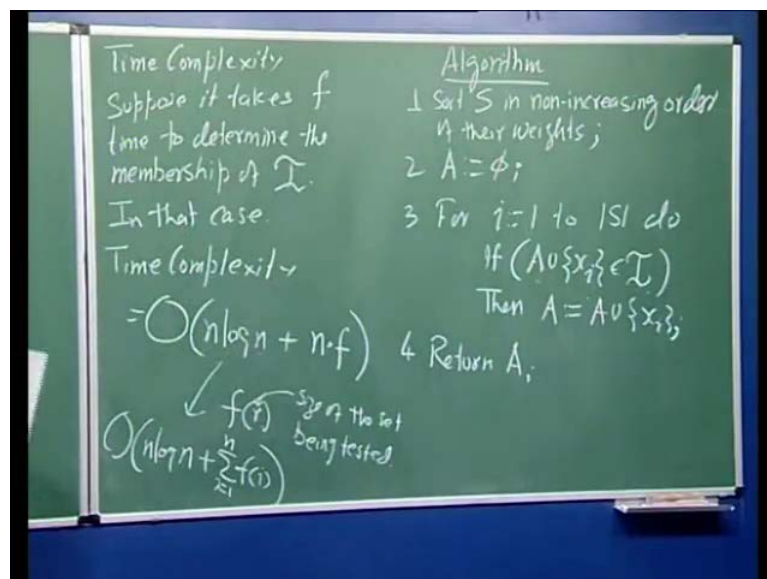 Time Complexity
Suppose it takes f
time to determine the
membership of I.
In that case.
Time Complexity
= O(nlogn + n·f)
f(i) size of the set
being tested.
O(nlogn + ∑ⁿᵢ₌₁ f(i))
Algorithm
1 Sort S in non-increasing order
of their weights;
2 A := φ;
3 For i=1 to |S| do
If (A∪{xᵢ} ∈ I)
Then A = A∪{xᵢ};
4 Return A;